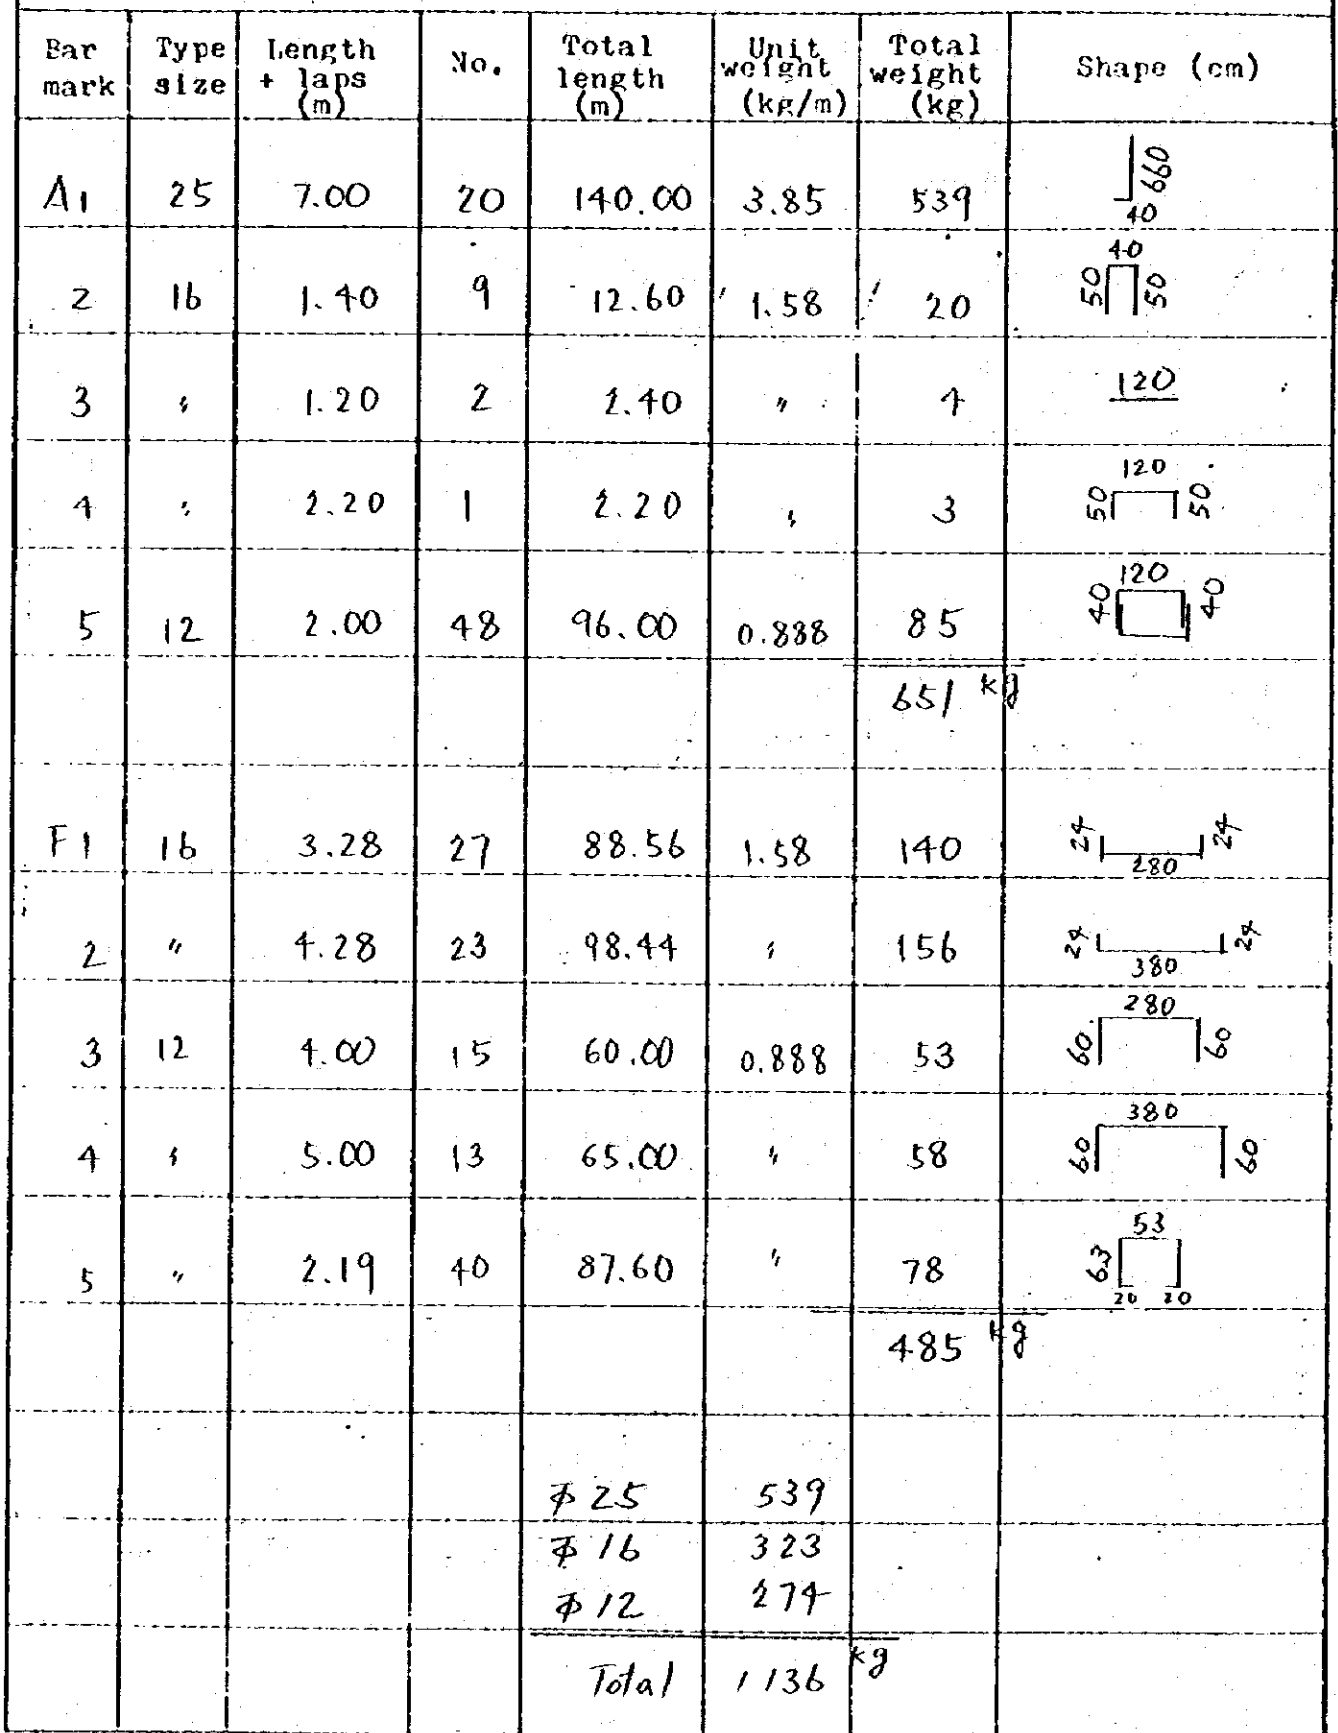 Bar mark Type size Length + laps (m) No. Total length (m) Unit weight (kg/m) Total weight (kg) Shape (cm)
A1 25 7.00 20 140.00 3.85 539 660 40
2 16 1.40 9 12.60 1.58 20 40 50 50
3 " 1.20 2 2.40 " 4 120
4 " 2.20 1 2.20 " 3 120 50 50
5 12 2.00 48 96.00 0.888 85 120 40 40
651 kg
F1 16 3.28 27 88.56 1.58 140 24 24 280
2 " 4.28 23 98.44 " 156 24 24 380
3 12 4.00 15 60.00 0.888 53 280 60 60
4 " 5.00 13 65.00 " 58 380 60 60
5 " 2.19 40 87.60 " 78 53 63 20 20
485 kg
φ 25 539
φ 16 323
φ 12 274
Total 1136 kg